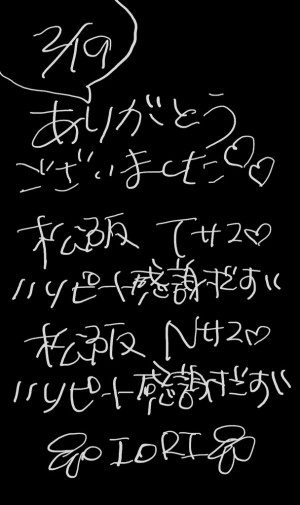 3/19
ありがとう
ございました♡♡
松阪 Tサマ♡
リピート感謝です
松阪 Nサマ♡
リピート感謝です
IORI